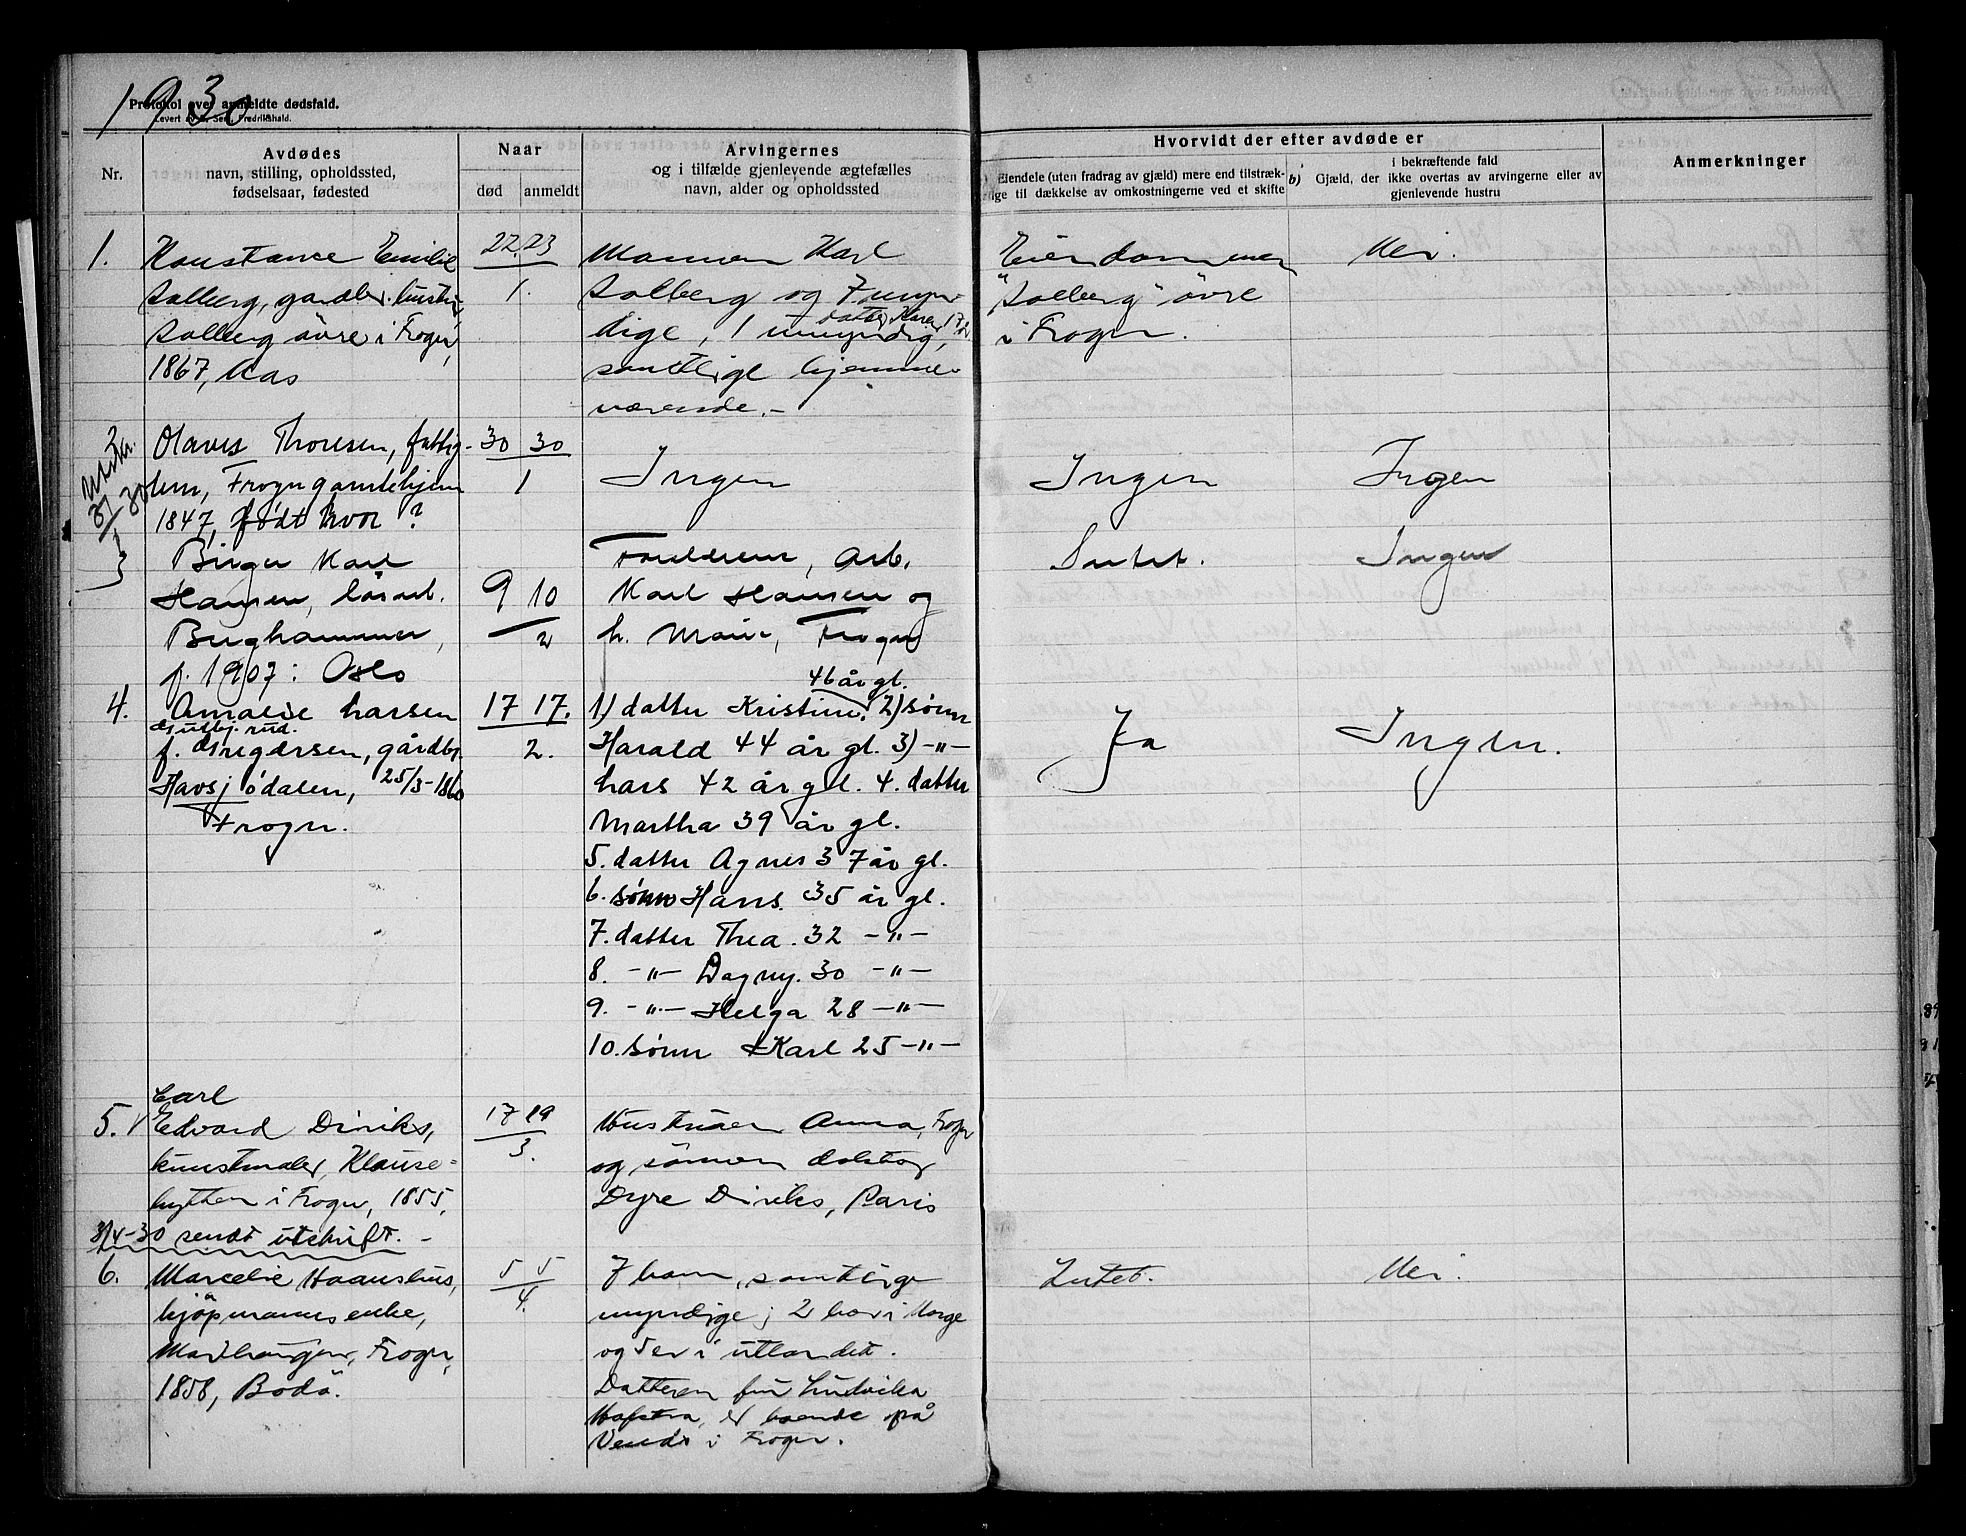 1930
Protokol over anmeldte dødsfald.
Levert av Sem, Fredrikshald.
Nr.
Avdødes
navn, stilling, opholdssted,
fødselsaar, fødested
Naar
død
anmeldt
Arvingernes
og i tilfælde gjenlevende ægtefælles
navn, alder og opholdssted
Hvorvidt der efter avdøde er
Eiendele (uten fradrag av gjæld) mere end tilstræk-
lige til dækkelse av omkostningerne ved et skifte
b) Gjæld, der
i bekræftende fald
ikke overtas av arvingerne eller av
gjenlevende hustru
Anmerkninger
1.
Konstance Emilie
Solberg, gardbr. hustru,
Solberg øvre i Frogn,
1867, Aas
22. 23
1.
Mannen Karl
Solberg og 7 myn-
datter Karen 17
dige, 1 umyndig,
samtlige hjemme-
værende.-
Eiendommen
"Solberg" øvre
i Frogn.
Nei.
2
Utskr.
31/1 30
Olaves Thoresen, fattig-
lem, Frogn gamlehjem
1847, født hvor ?
30 30
1
Ingen
Ingen
Ingen
3
Birger Karl
Hansen, løsarb.
Berghammer,
f. 1907: Oslo
9 10
2
Foreldrene, Arb.
Karl Hansen og
h. Marie, Frogn
Intet.
Ingen
4.
Amalie Larsen
f. Gregersen, gårdbr.
Havsjødalen, 25/3-1860
Frogn.
17 17.
2.
46 år gl.
1) datter Kristine, 2) sønn
Harald 44 år gl. 3) -"-
Lars 42 år gl. 4. datter
Martha 39 år gl.
5. datter Agnes 37 år gl.
6. sønn Hans. 35 år gl.
7. datter Thea. 32 -"-
8. -"- Dagny. 30 -"-
9. -"- Helga 28 -"-
10. sønn Karl 25 -"-
Ja
Ingen.
5.
Carl
Edvard Diriks,
kunstmaler, Klause-
hytten i Frogn, 1855,
3/4-30 sendt utskrift. -
17 19
3.
Hustruen Anna, Frogn
og sønnen doktor
Dyre Diriks, Paris
6.
Marcelie Haanshus,
kjøpmannsenke,
Frogn,
1858, Bodø.
5 5
4.
7 barn, samtlige
myndige; 2 bor i Norge
og 5 er i utlandet.
Datteren fru Ludvika
Hofstra, er boende på
i Frogn.
Intet.
Nei.